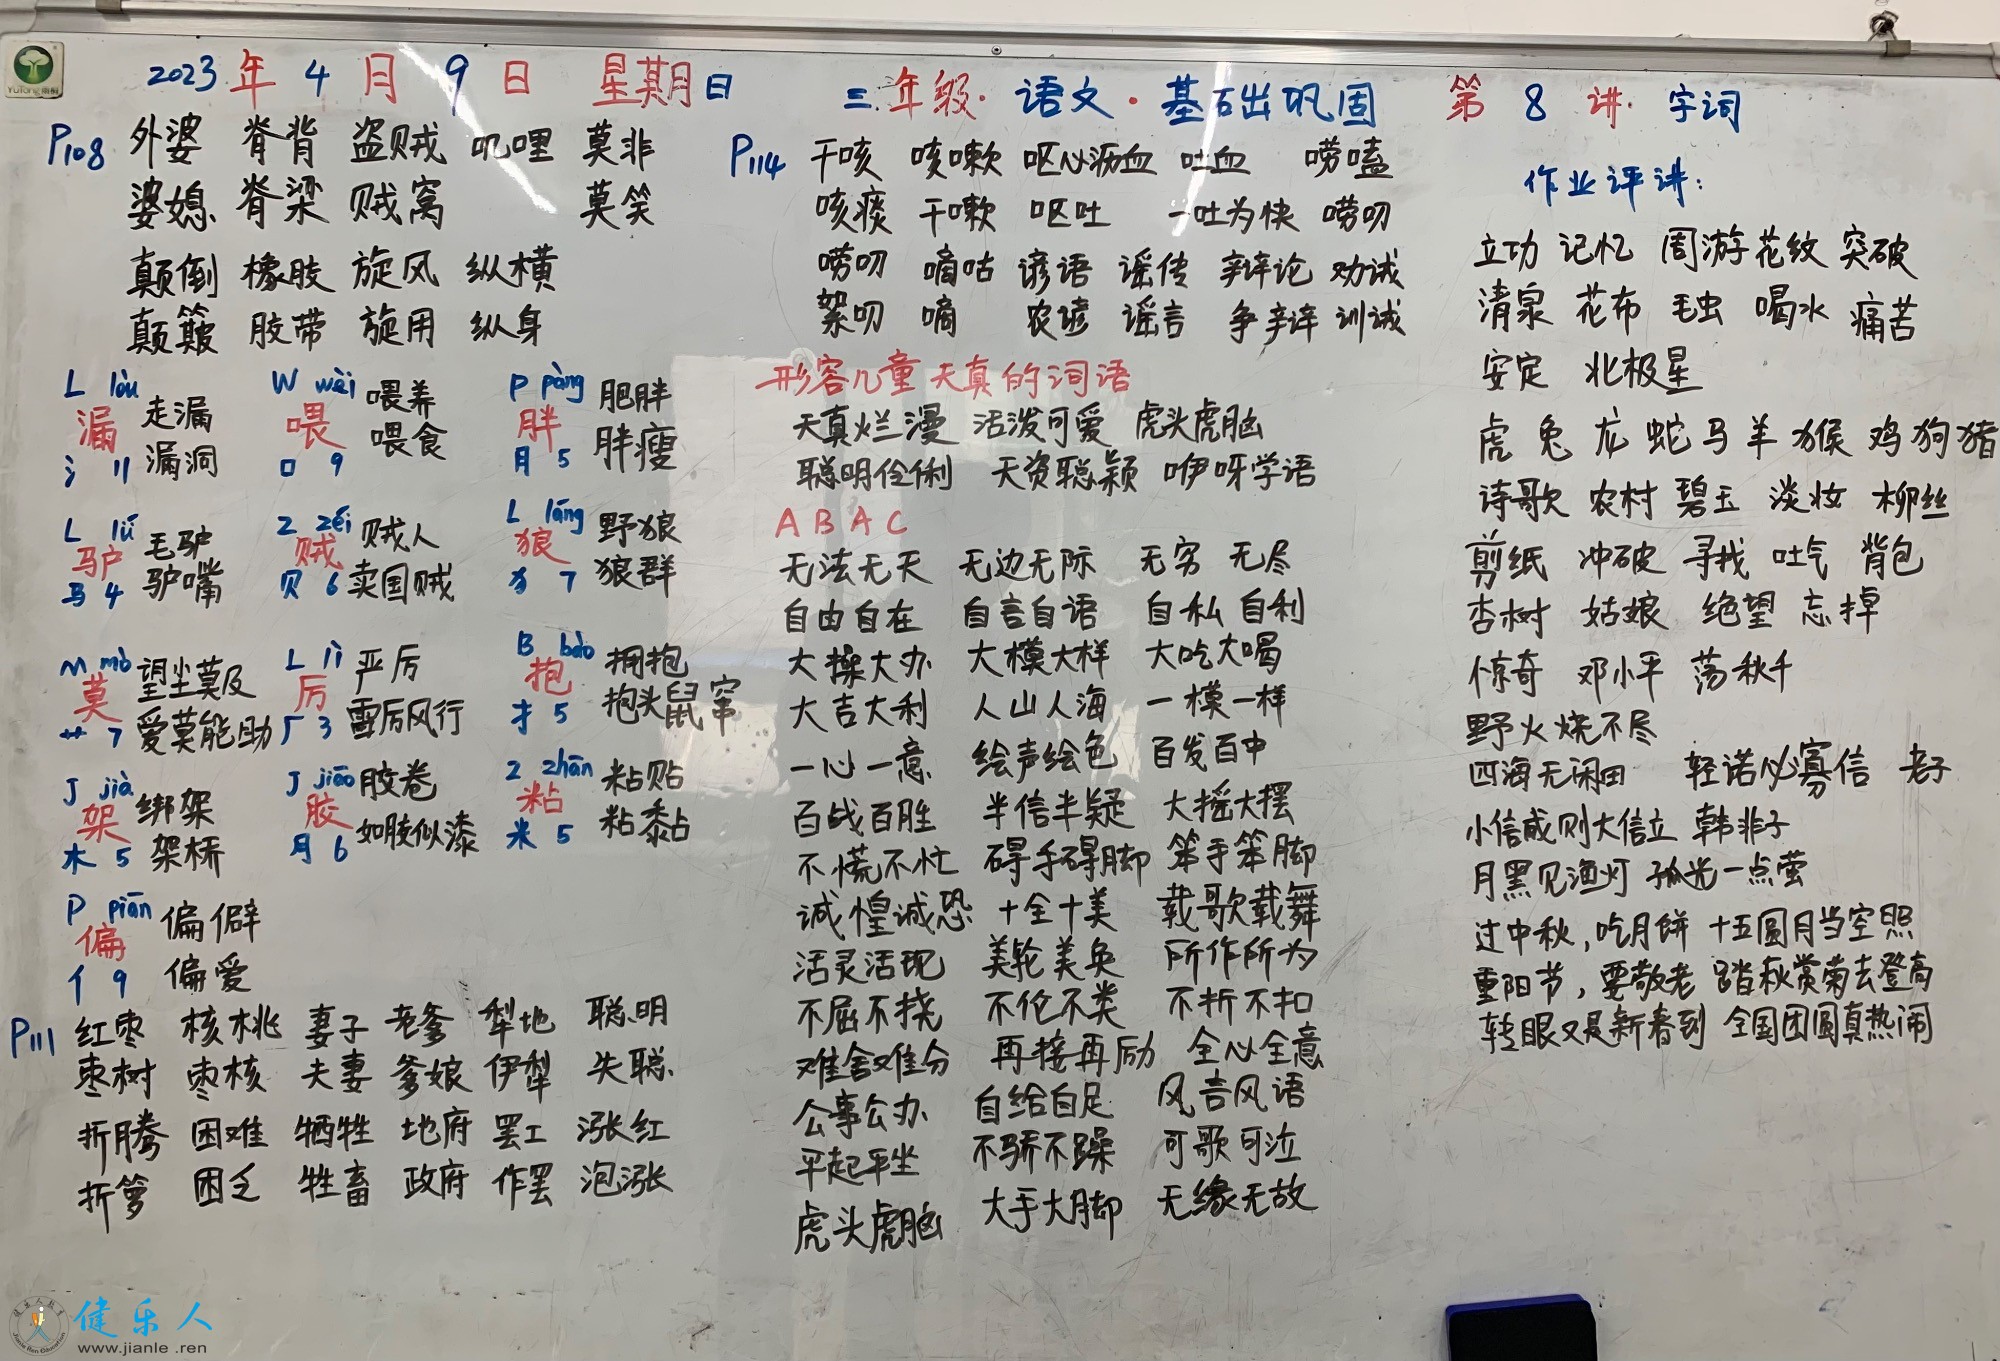 2023年4月9日 星期日
三年级·语文·基础巩固 第8讲·字词
P108 外婆 脊背 盗贼 叽哩 莫非
婆媳 脊梁 贼窝 莫笑
颠倒 橡胶 旋风 纵横
颠簸 胶带 旋用 纵身
L lòu W wèi P pàng
漏 走漏 喂 喂养 胖 肥胖
氵 11 漏洞 口 9 喂食 月 5 胖瘦
L lǘ Z zéi L láng
驴 毛驴 贼 贼人 狼 野狼
马 4 驴嘴 贝 6 卖国贼 犭 7 狼群
M mò L lì B bào
莫 望尘莫及 厉 严厉 抱 拥抱
艹 7 爱莫能助 厂 3 雷厉风行 扌 5 抱头鼠窜
J jià J jiāo Z zhān
架 绑架 胶 胶卷 粘 粘贴
木 5 架桥 月 6 如胶似漆 米 5 粘黏
P piān
偏 偏僻
亻 9 偏爱
P111 红枣 核桃 妻子 老爹 犁地 聪明
枣树 枣核 夫妻 爹娘 伊犁 失聪
折腾 困难 牺牲 地府 罢工 涨红
折箩 困乏 牲畜 政府 作罢 泡涨
P114 干咳 咳嗽 呕心沥血 吐血 唠嗑
咳痰 干嗽 呕吐 一吐为快 唠叨
唠叨 嘀咕 谚语 谣传 辩论 劝诫
絮叨 嘀 农谚 谣言 争辩 训诫
形容儿童天真的词语
天真烂漫 活泼可爱 虎头虎脑
聪明伶俐 天资聪颖 咿呀学语
ABAC
无法无天 无边无际 无穷无尽
自由自在 自言自语 自私自利
大操大办 大模大样 大吃大喝
大吉大利 人山人海 一模一样
一心一意 绘声绘色 百发百中
百战百胜 半信半疑 大摇大摆
不慌不忙 碍手碍脚 笨手笨脚
诚惶诚恐 十全十美 载歌载舞
活灵活现 美轮美奂 所作所为
不屈不挠 不伦不类 不折不扣
难舍难分 再接再励 全心全意
公事公办 自给自足 风言风语
平起平坐 不骄不躁 可歌可泣
虎头虎脑 大手大脚 无缘无故
作业评讲:
立功 记忆 周游 花纹 突破
清泉 花布 毛虫 喝水 痛苦
安定 北极星
虎 兔 龙 蛇 马 羊 猴 鸡 狗 猪
诗歌 农村 碧玉 淡妆 柳丝
剪纸 冲破 寻找 吐气 背包
杏树 姑娘 绝望 忘掉
惊奇 邓小平 荡秋千
野火烧不尽
四海无闲田 轻诺必寡信 老子
小信成则大信立 韩非子
月黑见渔灯 孤光一点萤
过中秋,吃月饼 十五圆月当空照
重阳节,要敬老 踏秋赏菊去登高
转眼又是新春到 全国团圆真热闹
健乐人
www.jianle.ren